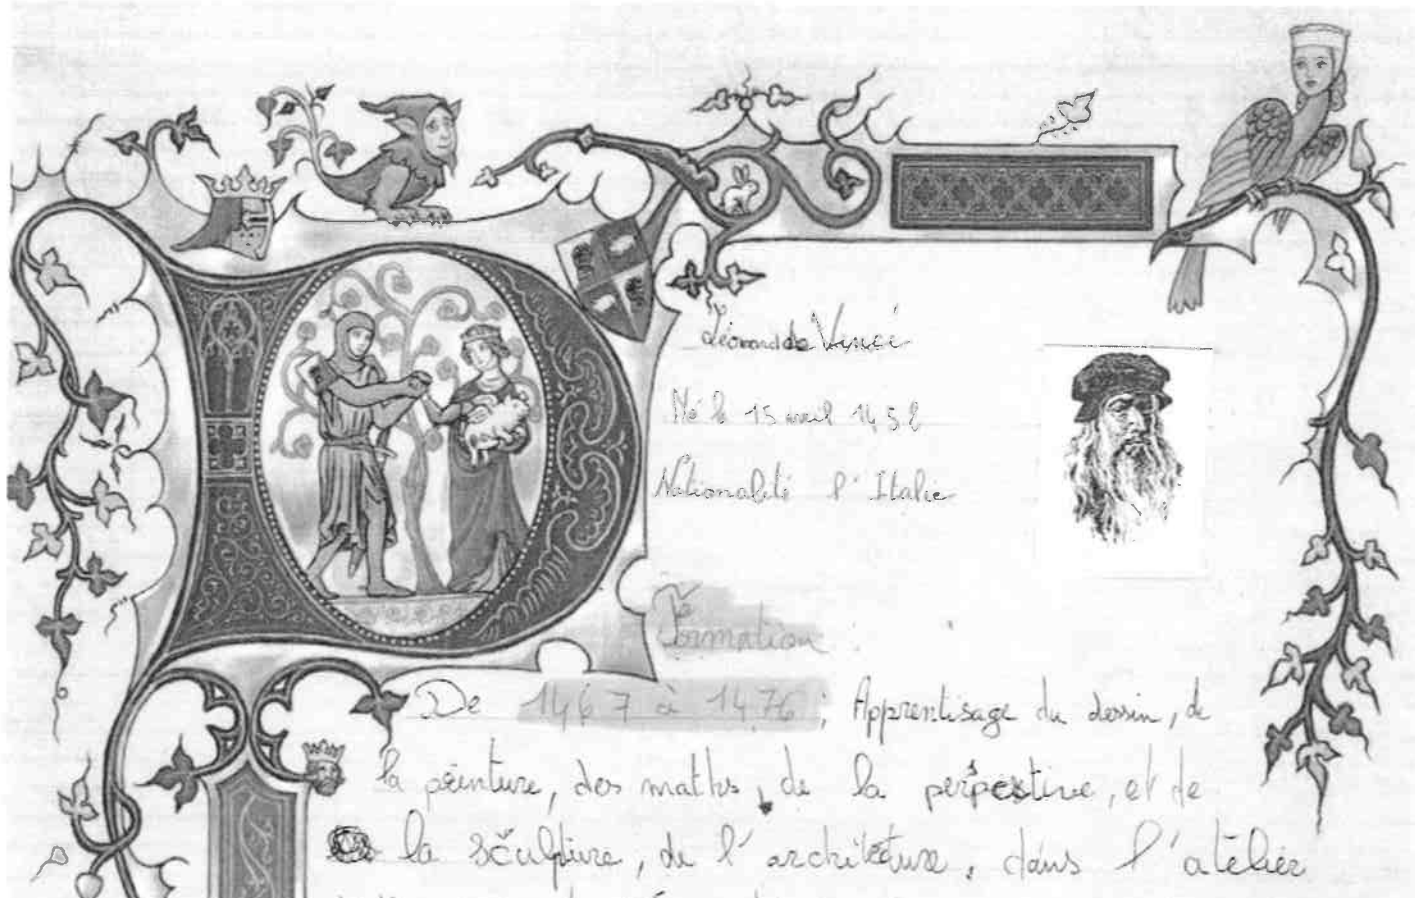 Léonard de Vinci
Né le 15 avril 1452
Nationalité l'Italie
Formation
De 1467 à 1476 ; Apprentisage du dessin, de
la peinture, des maths, de la perspestive, et de
la sculpture, de l'architecture, dans l'atelier